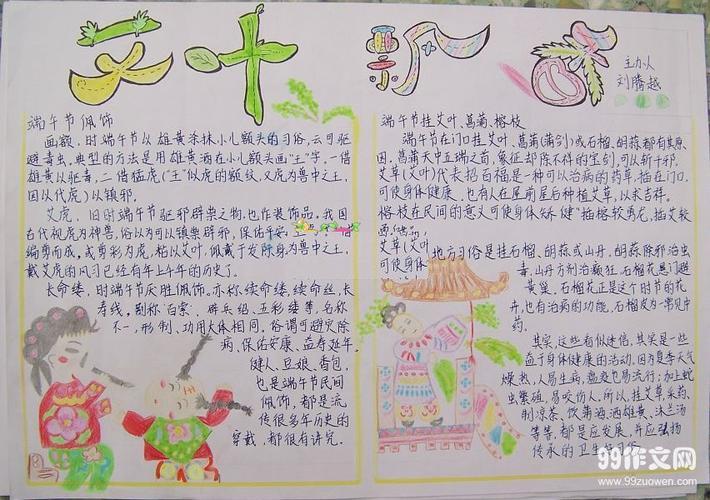 艾叶飘香
主办人
刘腾越
端午节佩饰
画额,时端午节以雄黄涂抹小儿额头的习俗,云可驱
避毒虫,典型的方法是用雄黄酒在小儿额头画"王"字,一借
雄黄以驱毒,二借猛虎("王"似虎的额纹,又虎为兽中之王,
因以代虎)以镇邪。
艾虎,旧时端午节驱邪辟祟之物,也作装饰品。我国
古代视虎为神兽,俗以为可以镇祟辟邪、保佑安
编剪而成,或剪彩为虎,粘以艾叶,佩戴于发际身
戴艾虎的风习已经有年上午年的历史了。
长命缕,时端午节厌胜佩饰。亦称续命缕,续命丝,长
寿线,别称"百索"、辟兵绍、五彩缕等,名称
不一,形制、功用大体相同。俗谓可避灾除
病、保佑安康、益寿延年。
健人、豆娘、香包,
也是端午节民间
佩饰,都是流
传很多年历史的
穿戴,都很有讲究。
端午节挂艾叶、菖蒲、榕枝
端午节在门口挂艾叶、菖蒲(蒲剑)或石榴、胡蒜,都有其原
因。菖蒲天中五瑞之首,象征却除不祥的宝剑,可以斩千邪。
艾草(艾叶)代表招百福,是一种可以治病的药草,插在门口,
可使身体健康。也有人在屋前屋后种植艾草,以求吉祥。
榕枝在民间的意义可使身体矫健"插榕较勇龙,插艾较
艾草(艾叶)
可使身体
地方习俗是挂石榴、胡蒜或山丹,胡蒜除邪治虫
毒,山丹方剂治癫狂。石榴花悬门避
黄巢。石榴花正是这个时节的花
卉,也有治病的功能,石榴皮为一常见中
药。
其实,这些看似迷信,其实是一些
益于身体健康的活动,因为夏季天气
燥热,人易生病,瘟疫也易流行;加上蛇
虫繁殖,易咬伤人,所以,挂艾草、采药、
制凉茶、饮蒲酒、洒雄黄、沐兰汤
等等,都是应发展,并应弘扬
传承的卫生好习俗
99作文网
www.99zuowen.com